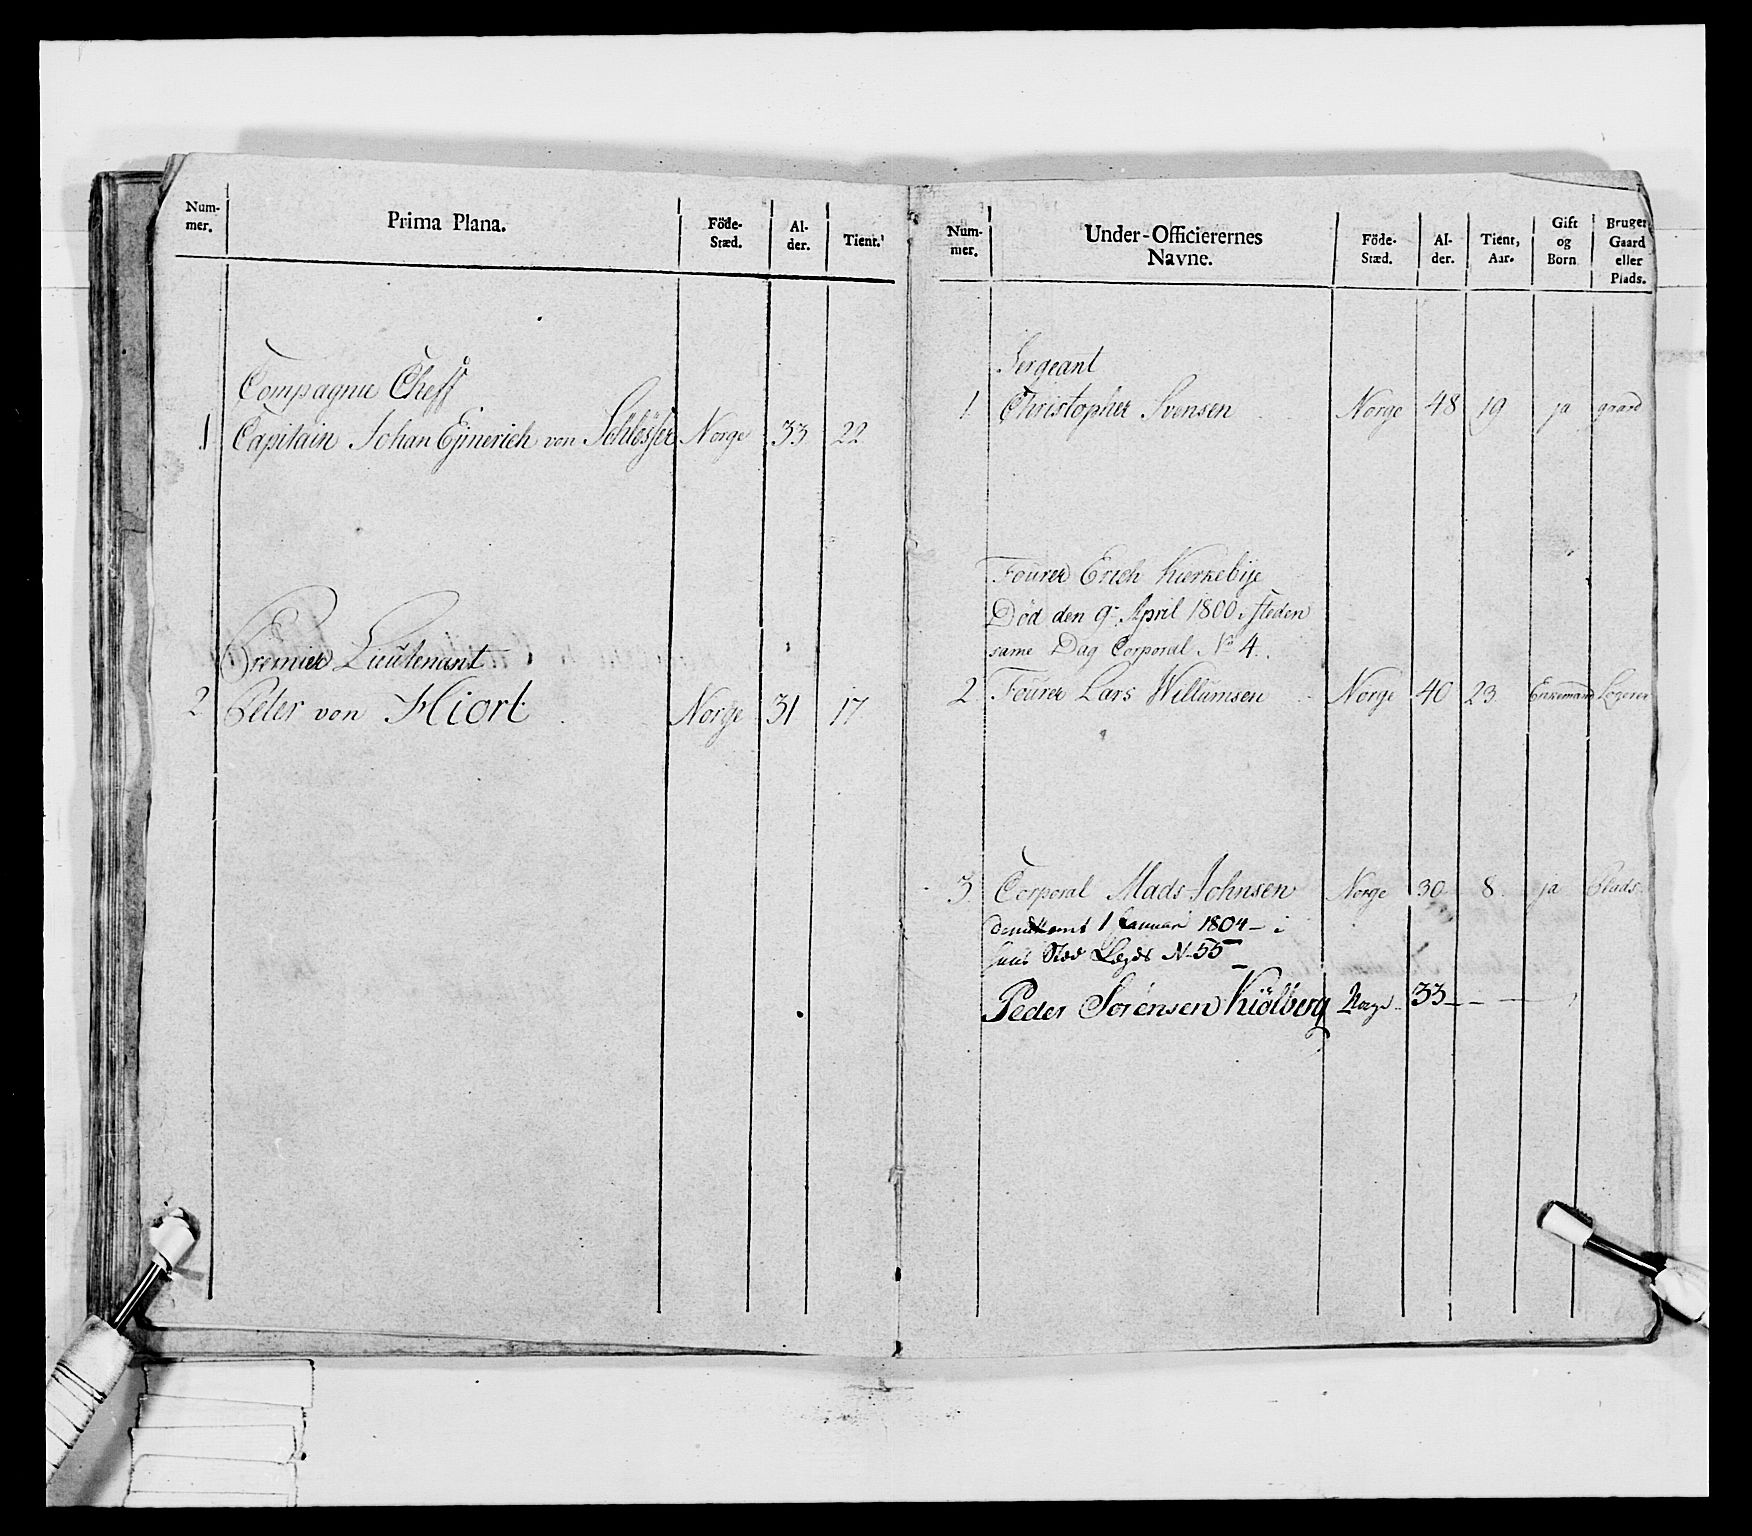 Num-
mer.
Prima Plana.
Föde-
Stæd.
Al-
der.
Tient.
Compagnie Cheff
1 Capitain Johan Ejmerich von Schlösser Norge 33 22
Premier Lieutenant
2 Peter von Hiort Norge 31 17
Num-
mer.
Under-Officierernes
Navne.
Föde-
Stæd.
Al-
der.
Tient,
Aar.
Gift
og
Born
Bruger
Gaard
eller
Plads.
Sergeant
1 Christopher Svensen Norge 48 19 ja gaard
Fourer Erich Kierkebye
Død den 9 April 1800 i steden
same Dag Corporal No 4.
2 Fourer Lars Willumsen Norge 40 23 Enkemand Logerer
3 Corporal Mads Johnsen Norge 30 8 ja Plads
1 Januari 1804 - i
hans Sted Lægds N 55
Peder Sörensen Kiölberg Norge 33